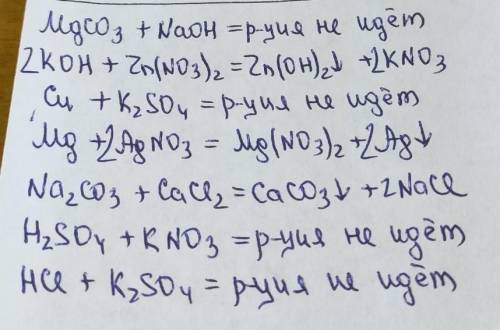 MgCO₃ + NaOH = р-ция не идёт
2KOH + Zn(NO₃)₂ = Zn(OH)₂↓ + 2KNO₃
Cu + K₂SO₄ = р-ция не идёт
Mg + 2AgNO₃ = Mg(NO₃)₂ + 2Ag↓
Na₂CO₃ + CaCl₂ = CaCO₃↓ + 2NaCl
H₂SO₄ + KNO₃ = р-ция не идёт
HCl + K₂SO₄ = р-ция не идёт